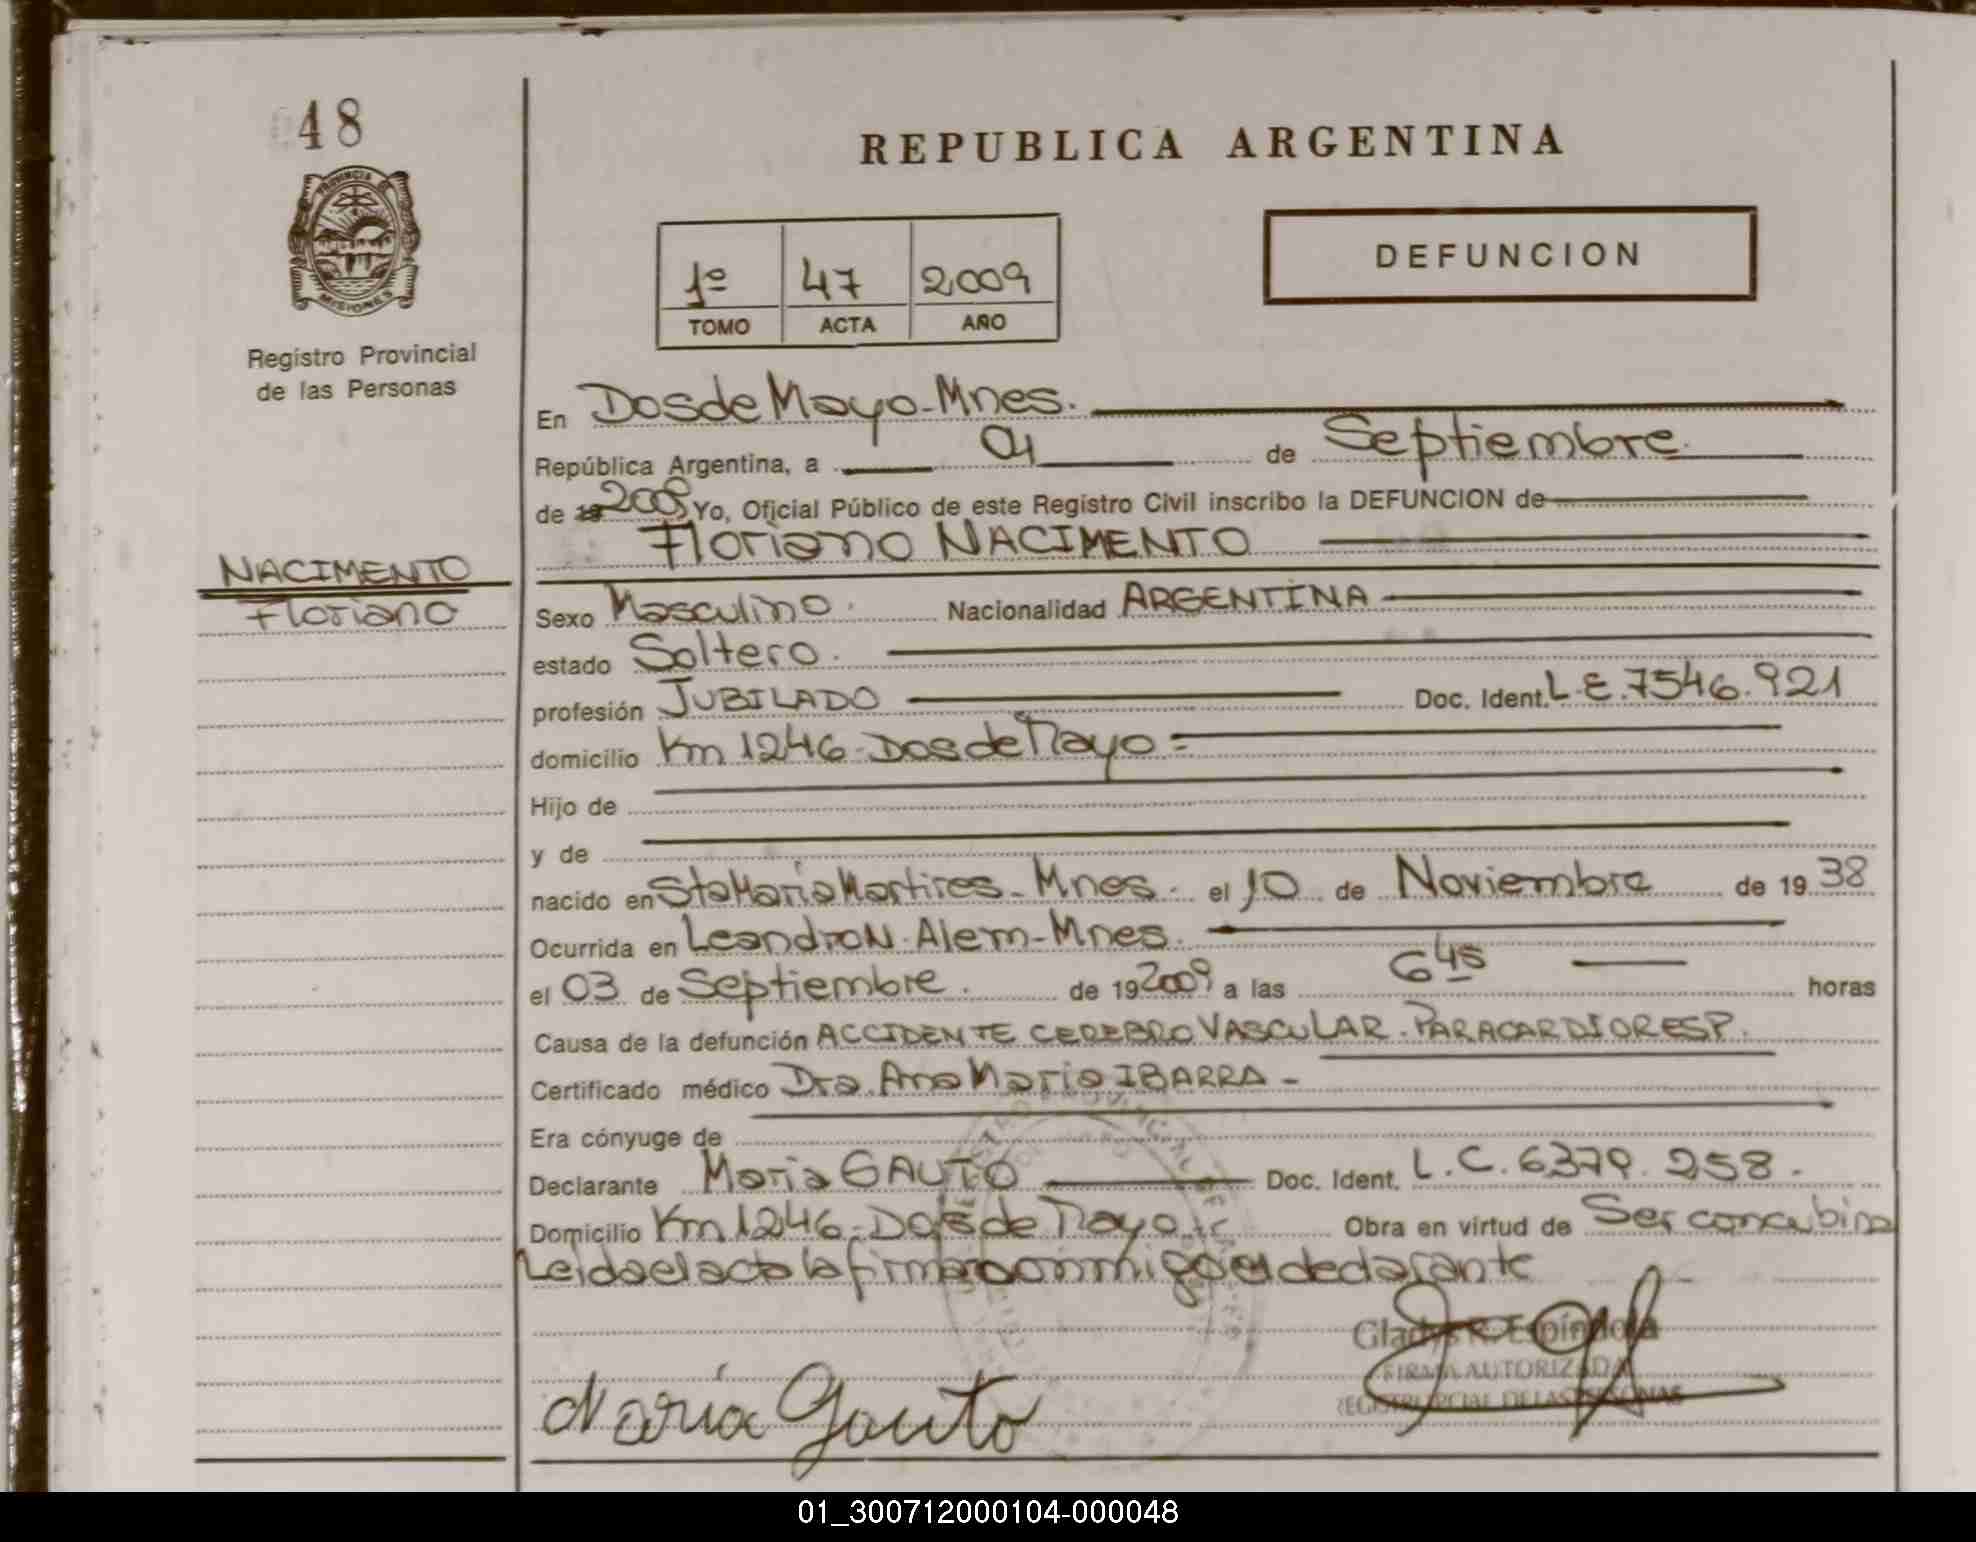 48
PROVINCIA DE
MISIONES
Registro Provincial
de las Personas
NACIMENTO
Floriano
REPUBLICA ARGENTINA
1º 47 2009
TOMO ACTA AÑO
DEFUNCION
En Dos de Mayo-Mnes.
República Argentina, a 04 de Septiembre
de 19 2009 Yo, Oficial Público de este Registro Civil inscribo la DEFUNCION de
Floriano NACIMENTO
Sexo Masculino. Nacionalidad ARGENTINA
estado Soltero.
profesión JUBILADO Doc. Ident. L.E. 7546.921
domicilio Km 1246-Dos de Mayo-
Hijo de
y de
nacido en Sta María Martires-Mnes. el 10 de Noviembre de 19 38
Ocurrida en Leandro N. Alem-Mnes.
el 03 de Septiembre. de 19 2009 a las 6 45 horas
Causa de la defunción ACCIDENTE CEREBRO VASCULAR. PARACARDIORESP.
Certificado médico Dra. Ana Maria IBARRA-
Era cónyuge de
Declarante Maria GAUTO Doc. Ident. L.C. 6379.258.
Domicilio Km 1246-Dos de Mayo Obra en virtud de Ser concubina
Leida el acta la firma conmigo el declarante
María Gauto
Gladys R. Espíndola
FIRMA AUTORIZADA
REGISTRO PCIAL. DE LAS PERSONAS
01_300712000104-000048